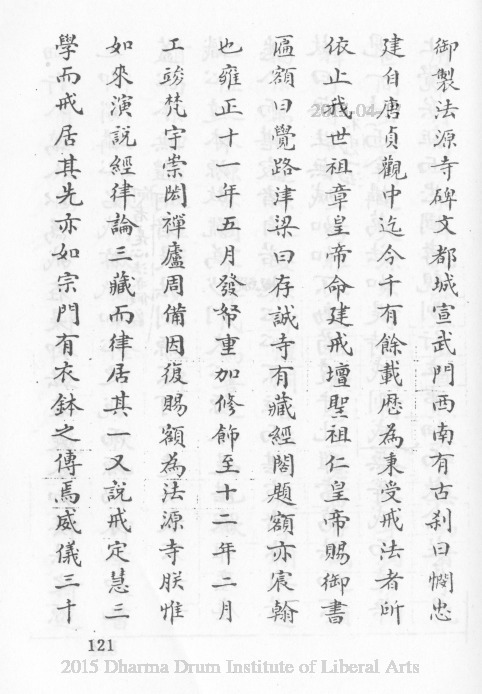 御製法源寺碑文都城宣武門西南有古刹曰憫忠
建自唐貞觀中迄今千有餘載歷為秉受戒法者所
依止我世祖章皇帝命建戒壇聖祖仁皇帝賜御書
匾額曰覺路津梁曰存誠寺有藏經閣題額亦宸翰
也雍正十一年五月發帑重加修飾至十二年二月
工竣梵宇崇閎禪廬周備因復賜額為法源寺朕惟
如來演説經律論三藏而律居其一又説戒定慧三
學而戒居其先亦如宗門有衣鉢之傳焉威儀三千
121
2015 Dharma Drum Institute of Liberal Arts